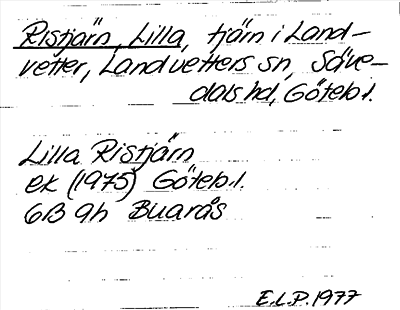 Ristjärn, Lilla, tjärn i Land-
vetter, Landvetters sn, Säve-
dals hd, Göteb.l.
Lilla Ristjärn
ek (1975) Göteb.l.
6B 9h Buarås
E.L.P. 1977